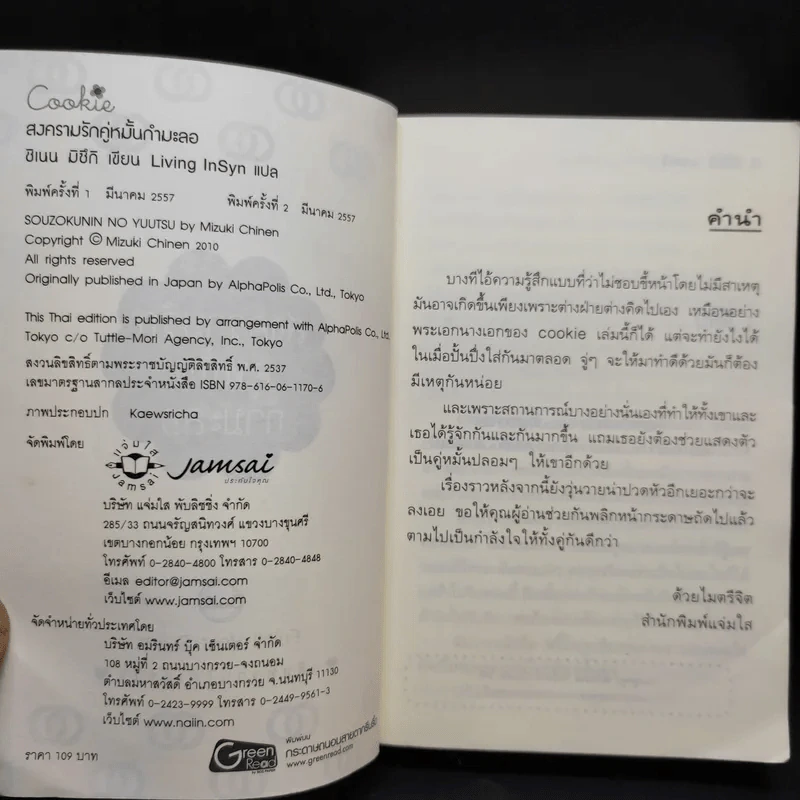 Cookie
สงครามรักคู่หมั้นกำมะลอ
ชิเนน มิซึกิ เขียน Living InSyn แปล
พิมพ์ครั้งที่ 1 มีนาคม 2557 พิมพ์ครั้งที่ 2 มีนาคม 2557
SOUZOKUNIN NO YUUTSU by Mizuki Chinen
Copyright © Mizuki Chinen 2010
All rights reserved
Originally published in Japan by AlphaPolis Co., Ltd., Tokyo
This Thai edition is published by arrangement with AlphaPolis Co., Ltd.
Tokyo c/o Tuttle-Mori Agency, Inc., Tokyo
สงวนลิขสิทธิ์ตามพระราชบัญญัติลิขสิทธิ์ พ.ศ. 2537
เลขมาตรฐานสากลประจำหนังสือ ISBN 978-616-06-1170-6
ภาพประกอบปก Kaewsricha
จัดพิมพ์โดย
แจ่มใส
Jamsai
Jamsai
ประทับใจคุณ
บริษัท แจ่มใส พับลิชชิ่ง จำกัด
285/33 ถนนจรัญสนิทวงศ์ แขวงบางขุนศรี
เขตบางกอกน้อย กรุงเทพฯ 10700
โทรศัพท์ 0-2840-4800 โทรสาร 0-2840-4848
อีเมล editor@jamsai.com
เว็บไซต์ www.jamsai.com
จัดจำหน่ายทั่วประเทศโดย
บริษัท อมรินทร์ บุ๊ค เซ็นเตอร์ จำกัด
108 หมู่ที่ 2 ถนนบางกรวย-จงถนอม
ตำบลมหาสวัสดิ์ อำเภอบางกรวย จ.นนทบุรี 11130
โทรศัพท์ 0-2423-9999 โทรสาร 0-2449-9561-3
เว็บไซต์ www.naiin.com
ราคา 109 บาท
Green Read
พิมพ์บน
กระดาษถนอมสายตากรีนรี้ด
www.greenread.com
คำนำ
บางทีไอ้ความรู้สึกแบบที่ว่าไม่ชอบขี้หน้าโดยไม่มีสาเหตุ
มันอาจเกิดขึ้นเพียงเพราะต่างฝ่ายต่างคิดไปเอง เหมือนอย่าง
พระเอกนางเอกของ cookie เล่มนี้ก็ได้ แต่จะทำยังไงได้
ในเมื่อปั้นปึ่งใส่กันมาตลอด จู่ๆ จะให้มาทำดีด้วยมันก็ต้อง
มีเหตุกันหน่อย
และเพราะสถานการณ์บางอย่างนั่นเองที่ทำให้ทั้งเขาและ
เธอได้รู้จักกันและกันมากขึ้น แถมเธอยังต้องช่วยแสดงตัว
เป็นคู่หมั้นปลอมๆ ให้เขาอีกด้วย
เรื่องราวหลังจากนี้ยังวุ่นวายน่าปวดหัวอีกเยอะกว่าจะ
ลงเอย ขอให้คุณผู้อ่านช่วยกันพลิกหน้ากระดาษถัดไปแล้ว
ตามไปเป็นกำลังใจให้ทั้งคู่กันดีกว่า
ด้วยไมตรีจิต
สำนักพิมพ์แจ่มใส